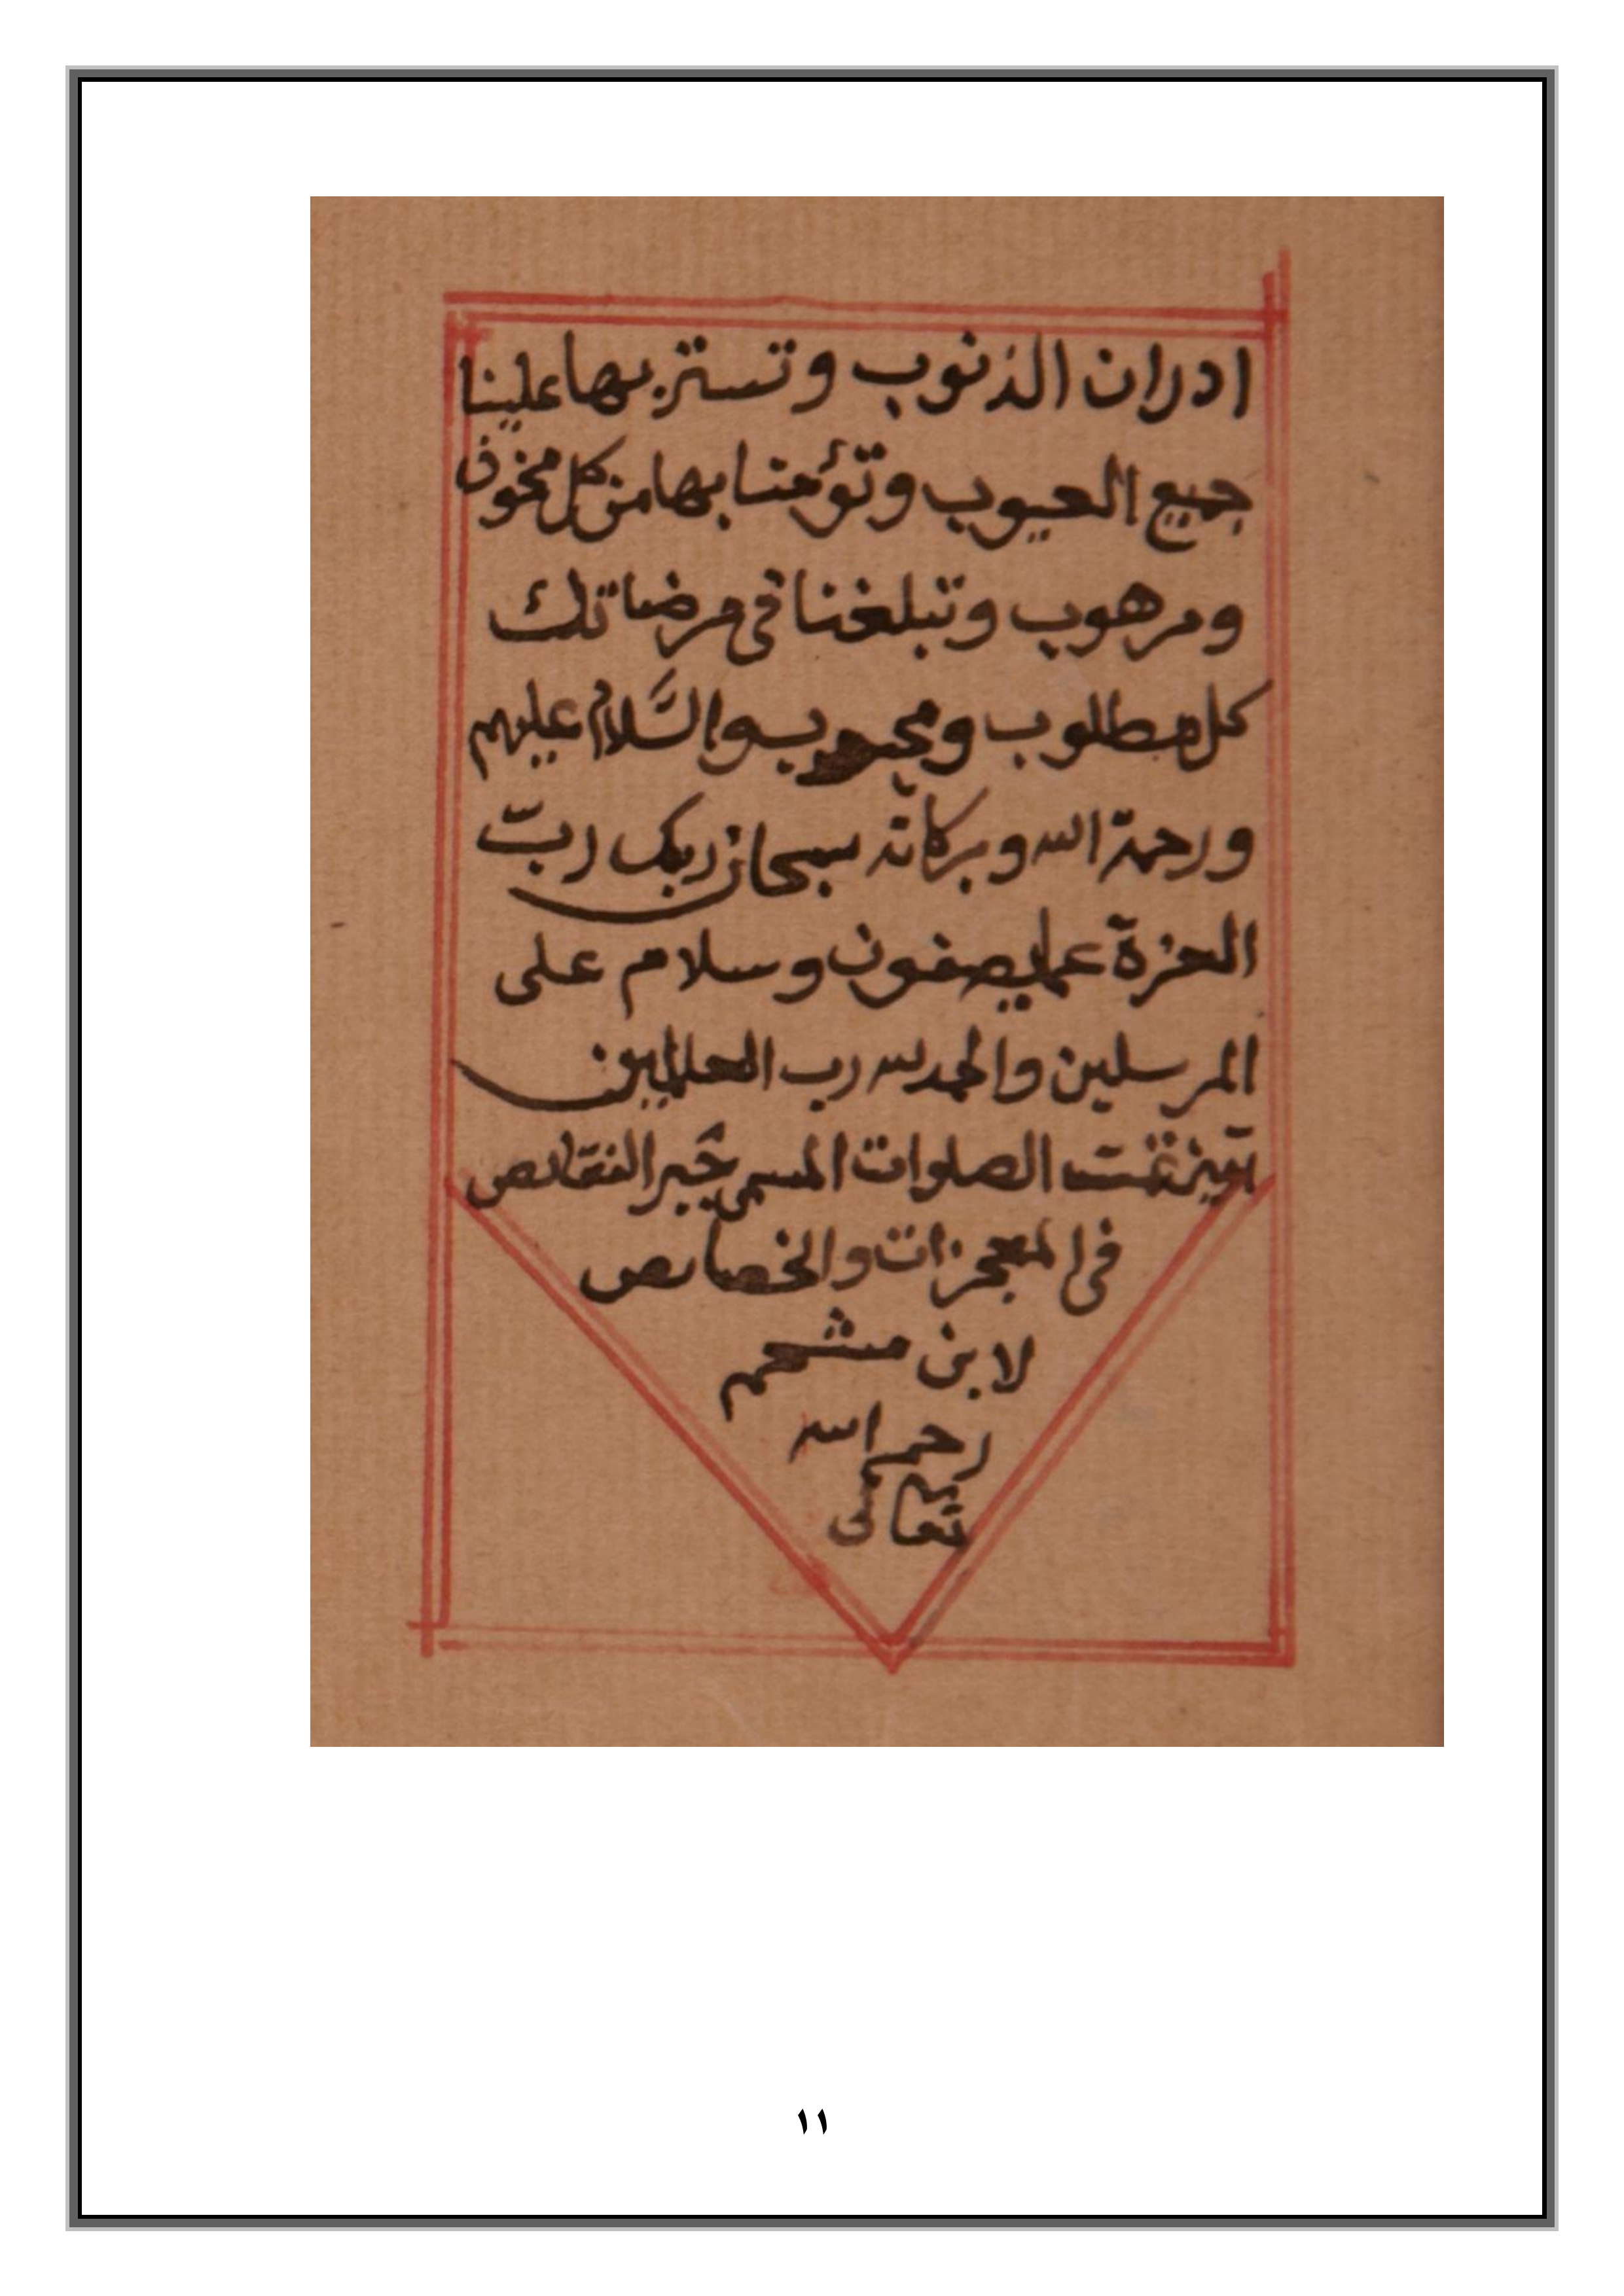 ادران الذنوب وتستر بها علينا
جميع العيوب وتؤمنا بها من كل مخوف
ومرهوب وتبلغنا في مرضاتك
كل مطلوب ومحبوب والسَّلام عليهم
ورحمة الله وبركاته سبحان ربك ربّ
العزة عما يصفون وسلام على
المرسلين والحمد لله رب العلمين
آمين تمت الصلوات المسمى جَبر النقائص
في المعجزات والخصائص
لابن مشحم
رحمه الله
تعالى
١١